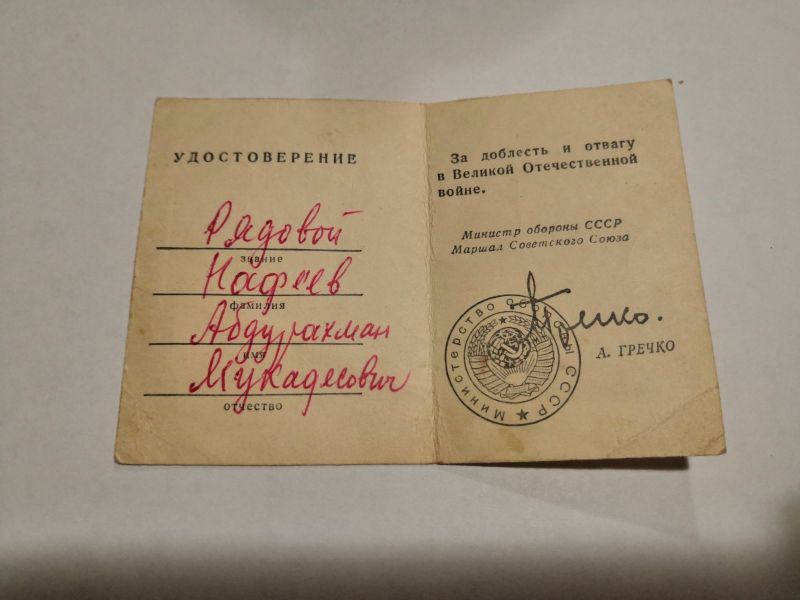 УДОСТОВЕРЕНИЕ
Рядовой
звание
Нафеев
фамилия
Абдурахман
имя
Мукадесович
отчество
За доблесть и отвагу
в Великой Отечественной
войне.
Министр обороны СССР
Маршал Советского Союза
Министерство обороны СССР
А. ГРЕЧКО